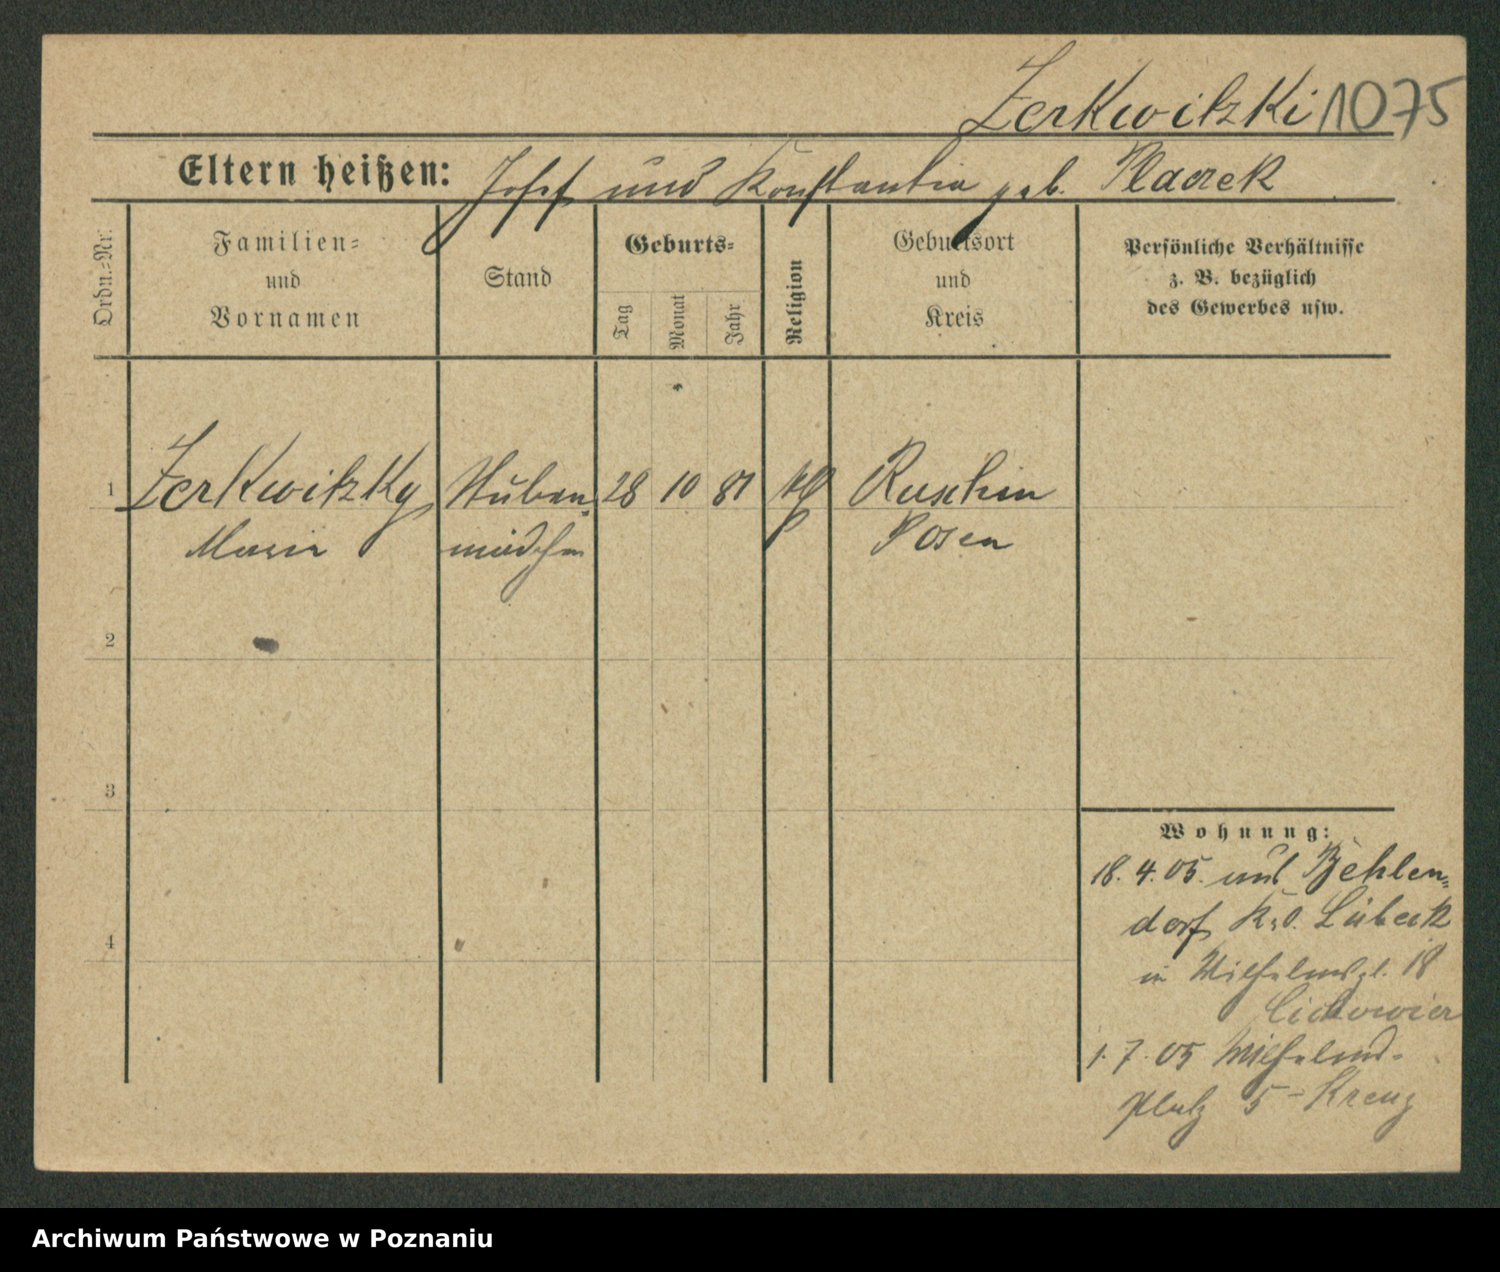 Zerkwitzki 1075
Eltern heißen: Josef und Konstantia geb. Placzek
Ordn.-Nr.
Familien-
und
Vornamen
Stand
Geburts-
Tag
Monat
Jahr
Religion
Geburtsort
und
Kreis
Persönliche Verhältnisse
z. B. bezüglich
des Gewerbes usw.
1 Zerkwitzky Stuben- 28 10 81 Ruschin
Marie mädchen Posen
2
3
4
Wohnung:
18. 4. 05. aus Behlen-
dorf Lübeck
in Wilhelmspl. 18
Cichowicz
1. 7. 05 Wilhelms-
platz 5 - Kreuz
Archiwum Państwowe w Poznaniu